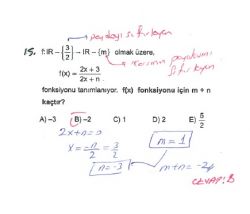 paydayı sıfırlayan
15. f:IR – {3/2} → IR – {m} olmak üzere,
f(x) = (2x + 3)/(2x + n)
fonksiyonu tanımlanıyor. f(x) fonksiyonu için m + n
kaçtır?
A) –3 B) –2 C) 1 D) 2 E) 5/2
2x+n=0
x = -n/2 = 3/2
n=-3
m=1
m+n=-2
CEVAP:B